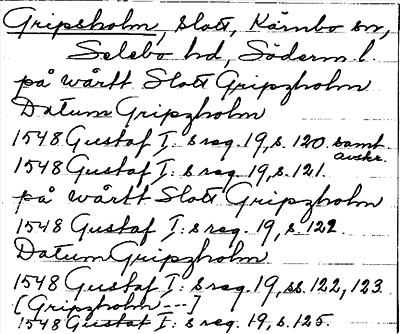 Gripsholm, slott, Kärnbo sn,
Selebo hd, Söderm l.
på wårtt Slott Gripzholm
Datum Gripzholm
1548 Gustaf I: s reg. 19, s. 120 samt avskr.
1548 Gustaf I: s reg. 19, s. 121.
på wårtt Slott Gripzholm
1548 Gustaf I: s reg. 19, s. 122
Datum Gripzholm
1548 Gustaf I: s reg. 19, ss. 122, 123
[Gripzholm ---]
1548 Gustaf I: s reg. 19, s. 125.